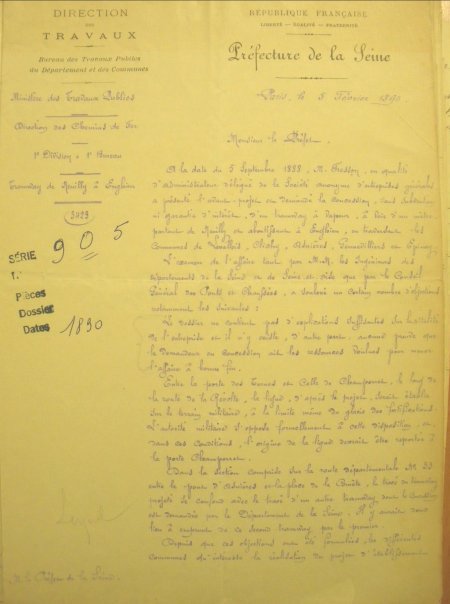 DIRECTION
DES
TRAVAUX
Bureau des Travaux Publics
du Département et des Communes
Ministère des Travaux Publics
Direction des Chemins de Fer
1e Division - 1er Bureau
Tramway de Neuilly à Enghien
3423
905
SÉRIE
Pièces
Dossier
Dates 1890
M. le Préfet de la Seine.
RÉPUBLIQUE FRANÇAISE
LIBERTÉ — ÉGALITÉ — FRATERNITÉ
Préfecture de la Seine
Paris, le 5 Février 1890.
Monsieur le Préfet,
A la date du 5 Septembre 1888, M. en qualité
d'administrateur délégué de la Société anonyme d'entreprises générales
a présenté l'avant-projet et demandé la concession, sans subvention
ni garantie d'intérêt, d'un tramway à vapeur, à voie d'un mètre,
partant de Neuilly et aboutissant à Enghien, en traversant les
Communes de Levallois, Clichy, Asnières, Gennevilliers et Epinay.
L'examen de l'affaire tant par M.M. les Ingénieurs des
départements de la Seine et de Seine et Oise que par le Conseil
Général des Ponts et Chaussées, a soulevé un certain nombre d'objections
notamment les suivantes :
Le dossier ne contient pas d'explications suffisantes sur l'utilité
de l'entreprise et il n'y existe, d'autre part, aucune preuve que
le demandeur en concession ait les ressources voulues pour mener
l'affaire à bonne fin.
Entre la porte des Ternes et celle de Champerret, le long de
la route de la Révolte, la ligne, d'après le projet, serait établie
sur le terrain militaire, à la limite même du glacis des fortifications.
L'autorité militaire s'oppose formellement à cette disposition et,
dans ces conditions, l'origine de la ligne devrait être reportée à
la porte Champerret.
Dans la section comprise sur la route départementale No
entre le pont d'Asnières et la place de la le tracé du tramway
projeté se confond avec le tracé d'un autre tramway dont la concession
est demandée par le Département de la Seine. Il y aurait donc
lieu à emprunt de ce second tramway par le premier.
Depuis que ces objections ont été formulées, les différentes
Communes qu'intéresse la réalisation du projet d'établissement